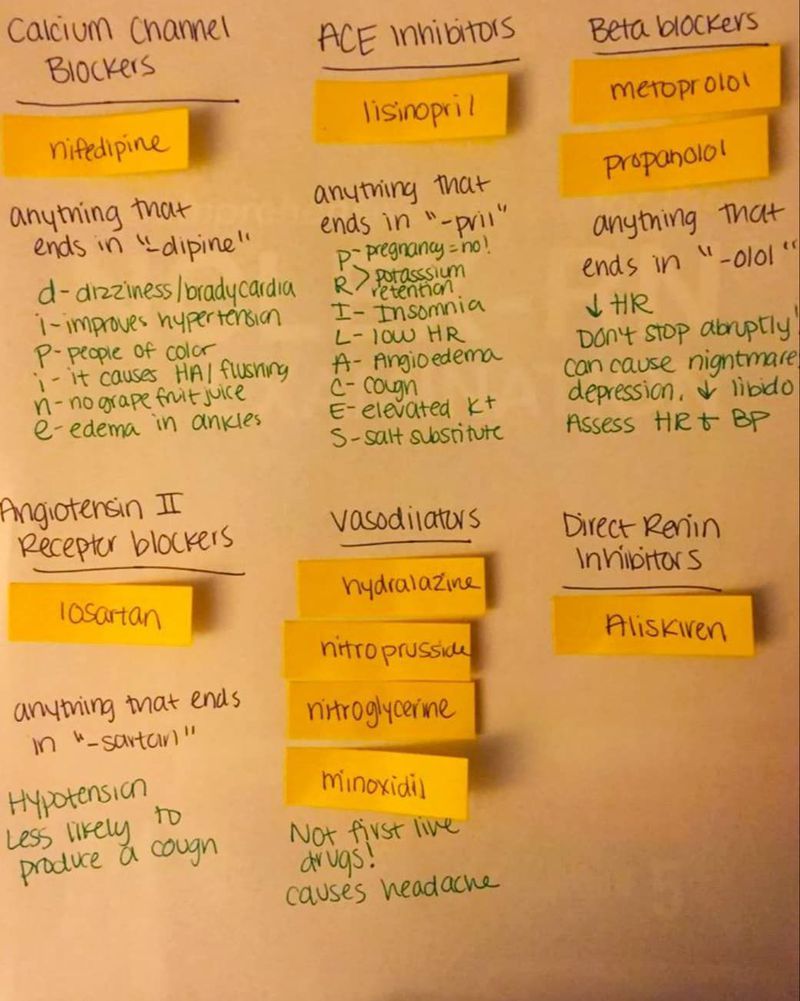 Calcium Channel
Blockers
nifedipine
anything that
ends in "-dipine"
d - dizziness/bradycardia
i - improves hypertension
P - people of color
i - it causes HA/flushing
n - no grapefruit juice
e - edema in ankles
ACE Inhibitors
lisinopril
anything that
ends in "-pril"
P - pregnancy = no!
R > potasssium
retention
I - Insomnia
L - low HR
A - Angioedema
C - cough
E - elevated K+
S - salt substitute
Beta blockers
metoprolol
propanolol
anything that
ends in "-olol"
↓ HR
Don't stop abruptly!
can cause nightmare,
depression, ↓ libido
Assess HR + BP
Angiotensin II
Receptor blockers
losartan
anything that ends
in "-sartan"
Hypotension
Less likely to
produce a cough
Vasodilators
hydralazine
nitroprusside
nitroglycerine
minoxidil
Not first line
drugs!
causes headache
Direct Renin
Inhibitors
Aliskiren